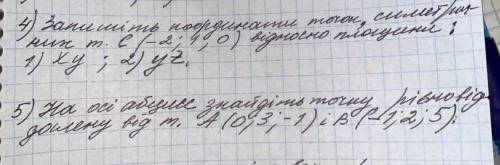 4) Запишіть координати точок, симетрич
них т. С (-2; 4; 0) відносно площини:
1) Ху ; 2) уZ.
5) На осі абцисс знайдіть точку рівновід
далену від т. А (0; 3; -1) і В (-1; 2; 5).